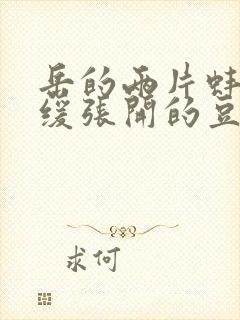 岳的两片蚌
缓张開的豆
求何